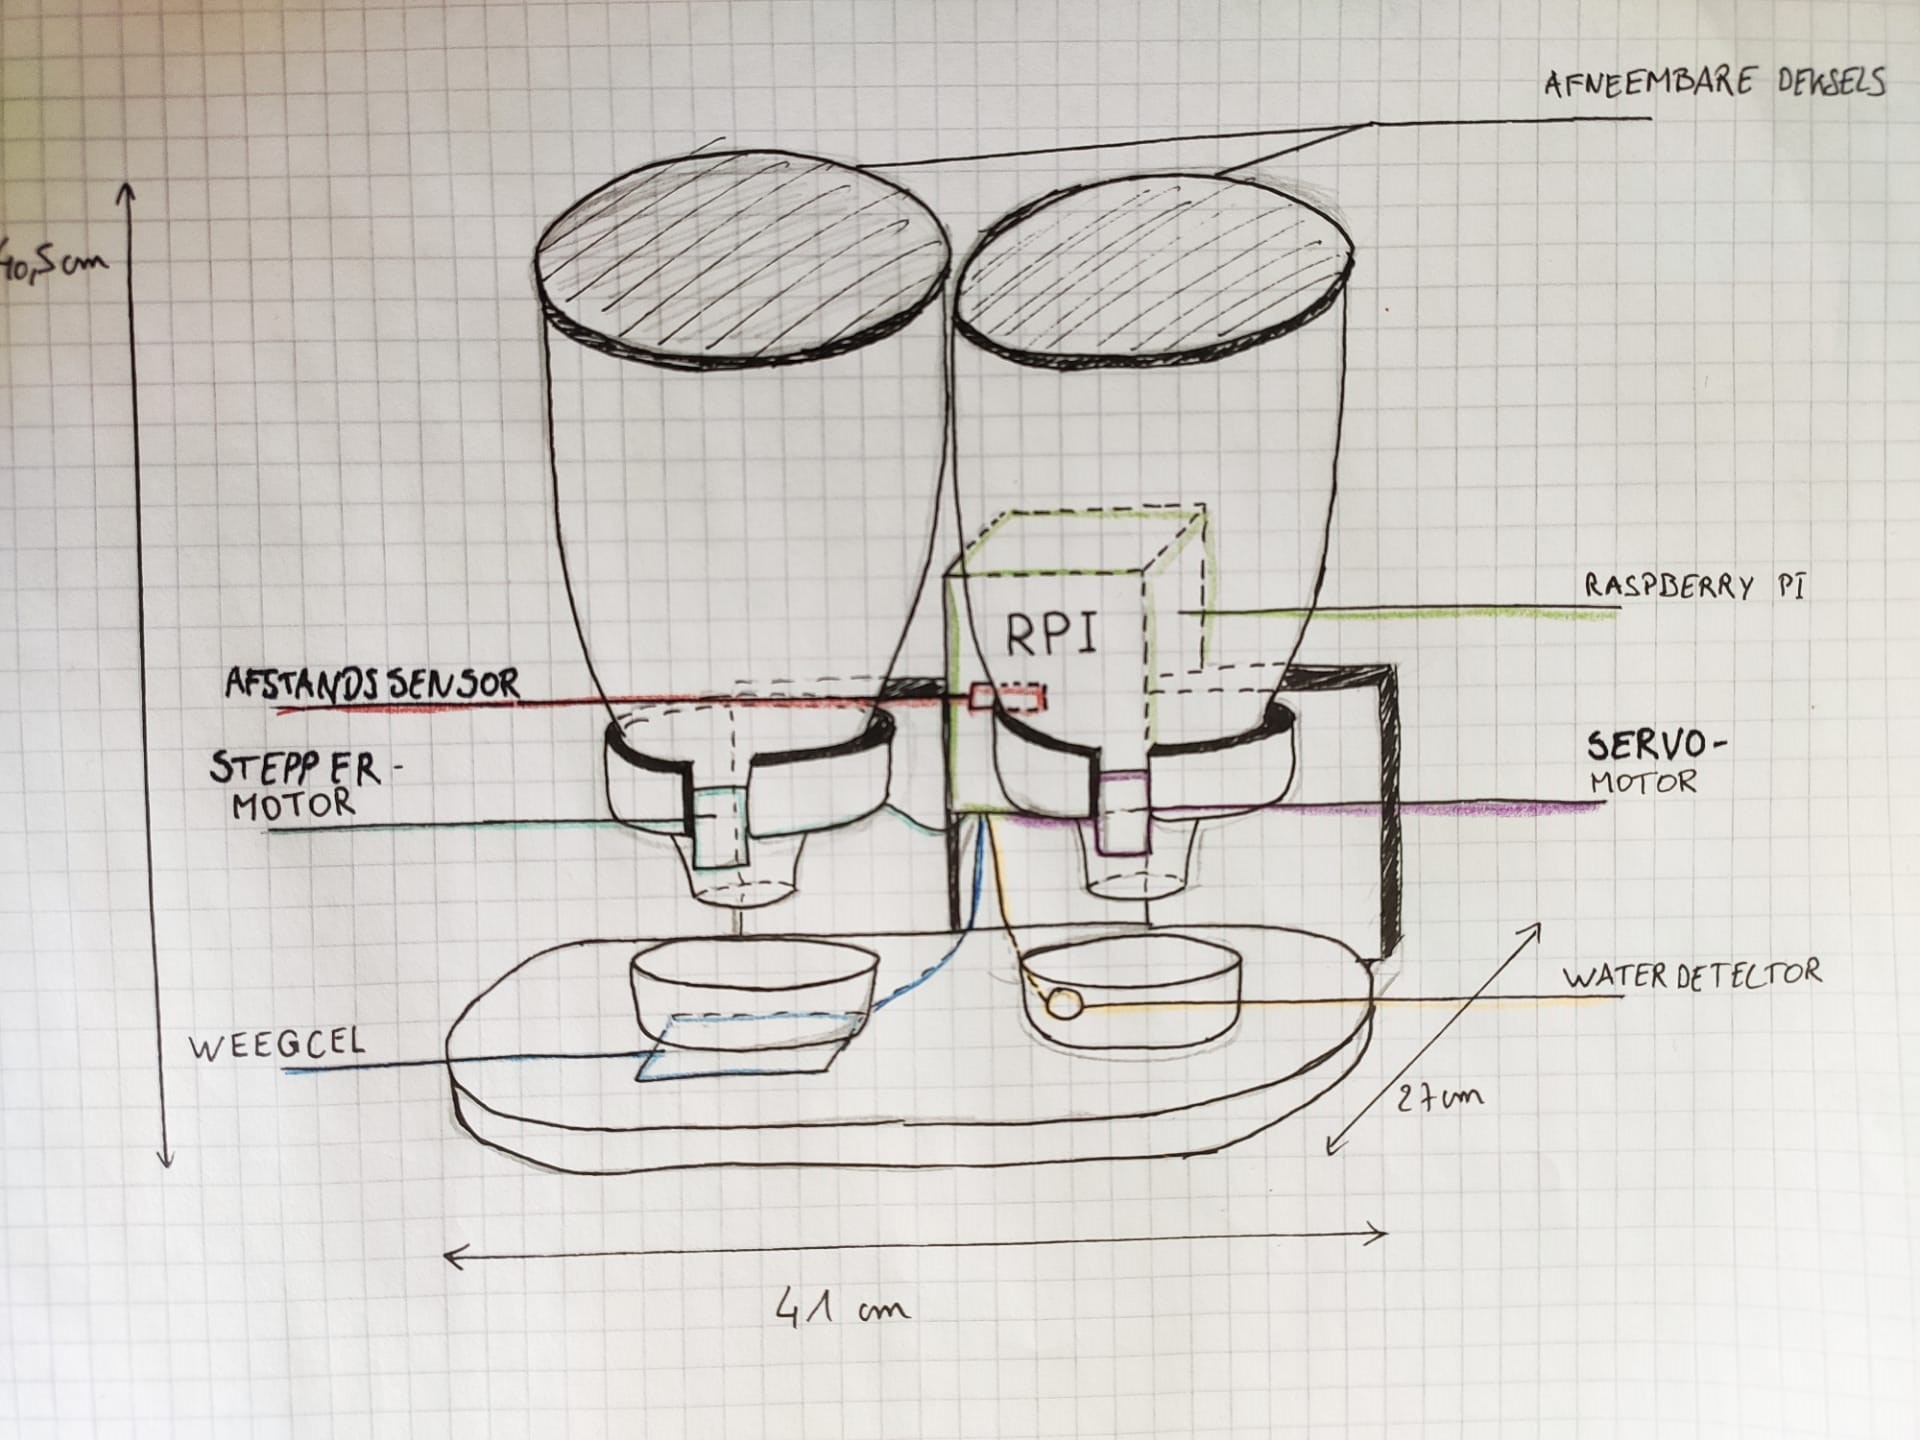 AFNEEMBARE DEKSELS
40,5cm
RPI
RASPBERRY PI
AFSTANDSSENSOR
STEPPER-
MOTOR
SERVO-
MOTOR
WATERDETECTOR
WEEGCEL
27cm
41 cm